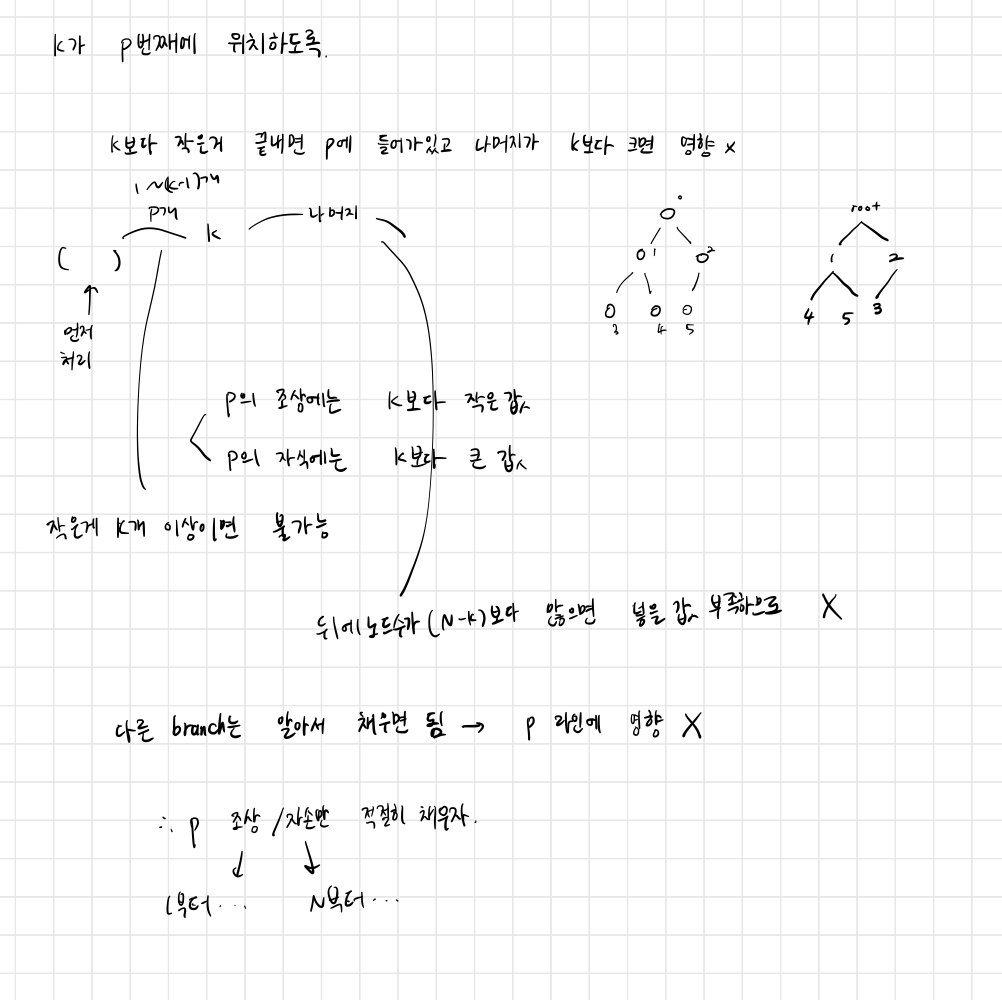 k가 p번째에 위치하도록.
k보다 작은거 끝내면 p에 들어가있고 나머지가 k보다 크면 영향 x
1~(k-1)개
p개 k 나머지
( )
먼저
처리
0
1 2
3 4 5
root
1 2
4 5 3
p의 조상에는 k보다 작은 값
p의 자식에는 k보다 큰 값
작은게 k개 이상이면 불가능
뒤에 노드수가 (N-k)보다 많으면 넣을 값 부족하므로 X
다른 branch는 알아서 채우면 됨 → p 라인에 영향 X
∴ p 조상/자손만 적절히 채우자.
1부터... N부터...